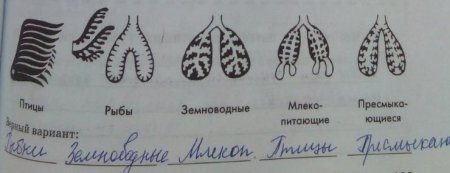 Птицы Рыбы Земноводные Млеко- Пресмыка-
питающие ющиеся
Верный вариант:
Рыбки Земноводные Млекоп. Птицы Пресмыкаю